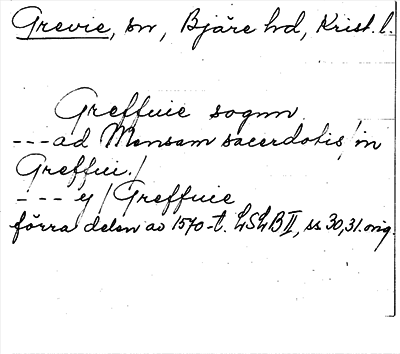 Grevie, sn, Bjäre hd, Krist. l.
Greffuie sognn
---ad Mensam sacerdotis/in
Greffui./
--- y/Greffuie
förra delen av 1570-t. LSLB II, ss 30,31.orig.